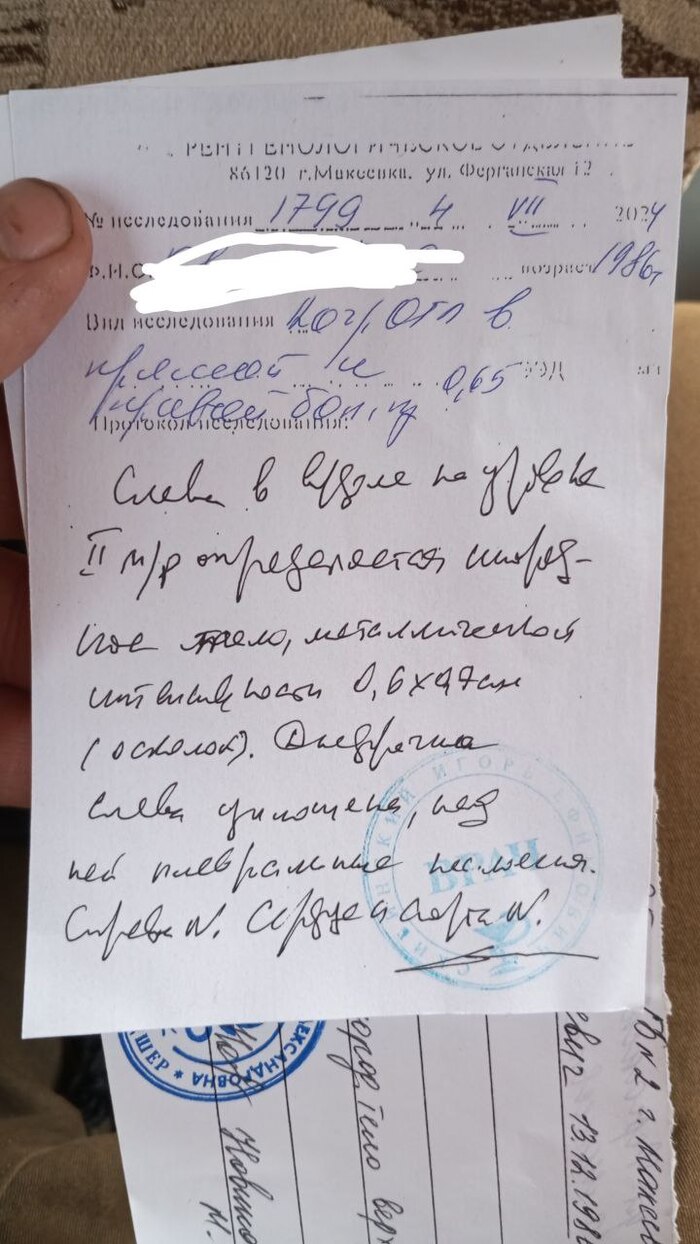 РЕНТГЕНОЛОГИЧЕСКОЕ ОТДЕЛЕНИЕ
86120 г.Макеевка, ул. Ферганская 12
№ исследования 1799 4 VII 2024
Ф.И.О. возраст 1986г
Вид исследования ОГП в
прямой и 0,65
Протокол исследования:
Слева в на уровне
II м/р определяется инород-
ное тело, металлической
интенсивности 0,6х0,7см
(осколок). Диафрагма
слева уплощена, над
ней плевральные наслоения.
Справа N. Сердце и аорта N.
ИГОРЬ
ВРАЧ
АЛЕКСАНДРОВНА
инород тело верх
евич 13.12.198
№2 г. Макее